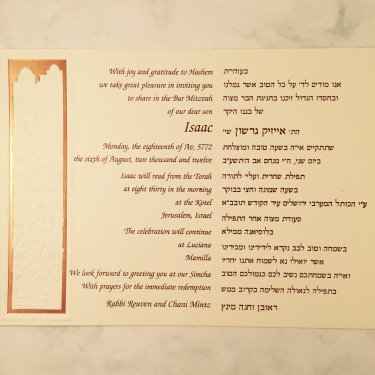 With joy and gratitude to Hashem
we take great pleasure in inviting you
to share in the Bar Mitzvah
of our dear son
Isaac
Monday, the eighteenth of Av, 5772
the sixth of August, two thousand and twelve
Isaac will read from the Torah
at eight thirty in the morning
at the Kotel
Jerusalem, Israel
The celebration will continue
at Luciana
Mamilla
We look forward to greeting you at our Simcha
With prayers for the immediate redemption
Rabbi Reuven and Chani Mintz
בעזהי"ת
אנו מודים לד' על כל הטוב אשר גמלנו
ובחסדו הגדול זיכנו בחגיגת הבר מצוה
של בננו היקר
הת' אייזיק גרשון שי'
שתתקיים אי"ה בשעה טובה ומוצלחת
ביום שני, ח"י מנחם אב ה'תשע"ב
תפילת שחרית ועלי' לתורה
בשעה שמונה וחצי בבוקר
ע"י הכותל המערבי ירושלים עיר הקודש תובב"א
סעודת מצוה אחר התפילה
בלוסיאנה ממילא
בשמחה וטוב לבב נקרא לידידינו ומכירינו
אשר יואילו נא לשמוח אתנו יחדיו
ואי"ה בשמחתכם נשיב לכם כגמולכם הטוב
בתפילה לגאולה השלימה בקרוב ממש
ראובן וחנה מינץ